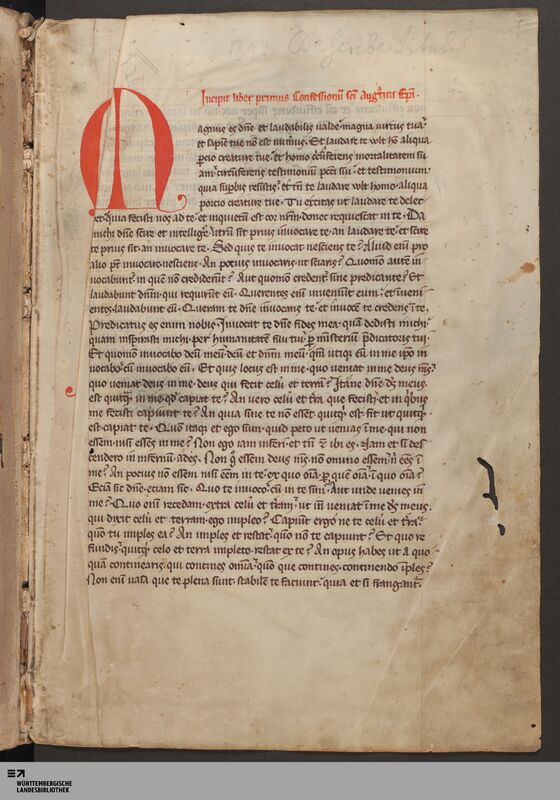 Incipit liber primus Confessionū sci̅ Augustini Epi̅.
Magnus es dn̅e et laudabilis valde magna virtus tua
et sapie̅ tue non est num̅us. Et laudare te wlt ho̅ aliqua
porcio creature tue et homo circu̅ferens mortalitatem su
am. circu̅ferens testimoniu̅ pcc̅i sui et testimonium
quia suꝑbis resistis et tn̅ te laudare wlt homo aliqua
porcio creature tue. Tu excitas ut laudare te delec
tet. Quia fecisti nos ad te et inquietu̅ est cor nr̅m donec requiescat in te. Da
michi dn̅e scire et intelligere utru̅ sit prius invocare te an laudare te et scire
te prius sit an invocare te. Sed quis te invocat nesciens te? Aliud eni̅ pro
alio pt̅ invocare nesciens. An pocius invocaris ut sciaris? Quomo̅ autem in
vocabunt in que̅ non crediderunt? Aut quomo̅ credent sine predicante? Et
laudabunt dn̅m qui requirunt eu̅. Querentes eni̅ inveniunt eum et inveni
entes laudabunt eu̅. Queram te dn̅e invocans te et invoce̅ te credens i̅ te.
Predicatus es enim nobis. Invocat te dn̅e fides mea qua̅ dedisti michi
quam inspirasti michi per humanitate̅ filii tui ꝑ misteriu̅ p̅dicatoris tui.
Et quomo̅ invocabo deu̅ meu̅ deu̅ et dn̅m meu̅ qm̅ utiqꝫ eu̅ in me ip̅o in
vocabo cu̅ invocabo eu̅. Et quis locus est in me quo veniat in me deus ms̅
quo veniat deus in me deus qui fecit celu̅ et terra̅? Itane dn̅e ds̅ meus
est quitqꝫ in me qd̅ capiat te? An vero celu̅ et tr̅a que fecisti et in qbus
me fecisti capiunt te? An quia sine te non esset quitqꝫ est fit ut quitqꝫ
est capiat te. Quo itaqꝫ et ego sum quid peto ut venias i̅ me qui non
essem nisi esses in me? Non ego iam inferi et tn̅ & ibi es. Nam et si des
cendero in infernu̅ ades. Non g̊ essem deus ms̅ non omnino essem n̅ ees̅ i̅
me? An pocius non essem nisi ee̅m in te ex quo oi̅a ꝑ que̅ oi̅a i̅ quo oi̅a?
Ecia̅ sic dn̅e eciam sic. Quo te invoco cu̅ in te sim? Aut unde venies in
me? Quo eni̅ recedam extra celu̅ et tr̅am ut in̅ veniat i̅ me ds̅ meus
qui dixit celu̅ et terram ego impleo? Capiu̅t ergo ne te celu̅ et tr̅a
quo̅ tu imples ea? An imples et restat quo̅ no̅ te capiunt? Et quo re
fundis quitqꝫ celo et terra impleto restat ex te? An opus habes ut a quo
quam continearis qui contines omi̅a quo̅ que contines continendo i̅ples?
Non eni̅ vasa que te plena sunt stabile̅ te faciunt quia et si frangant̅
WÜRTTEMBERGISCHE
LANDESBIBLIOTHEK